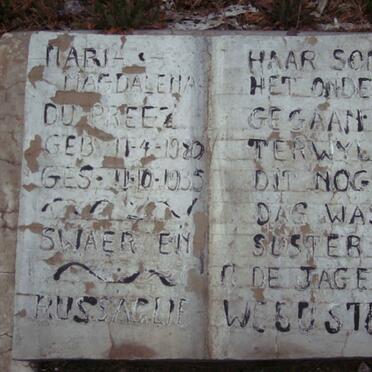 MARIA
MAGDALENA
DU PREEZ
GEB 11-4-1920
GES. 11-10-1935
SWAER EN
RUSSAGIE
HAAR SON
HET ONDE
GEGAAN
TERWYL
DIT NOG
DAG WAS
SUSTER
DE JAGE